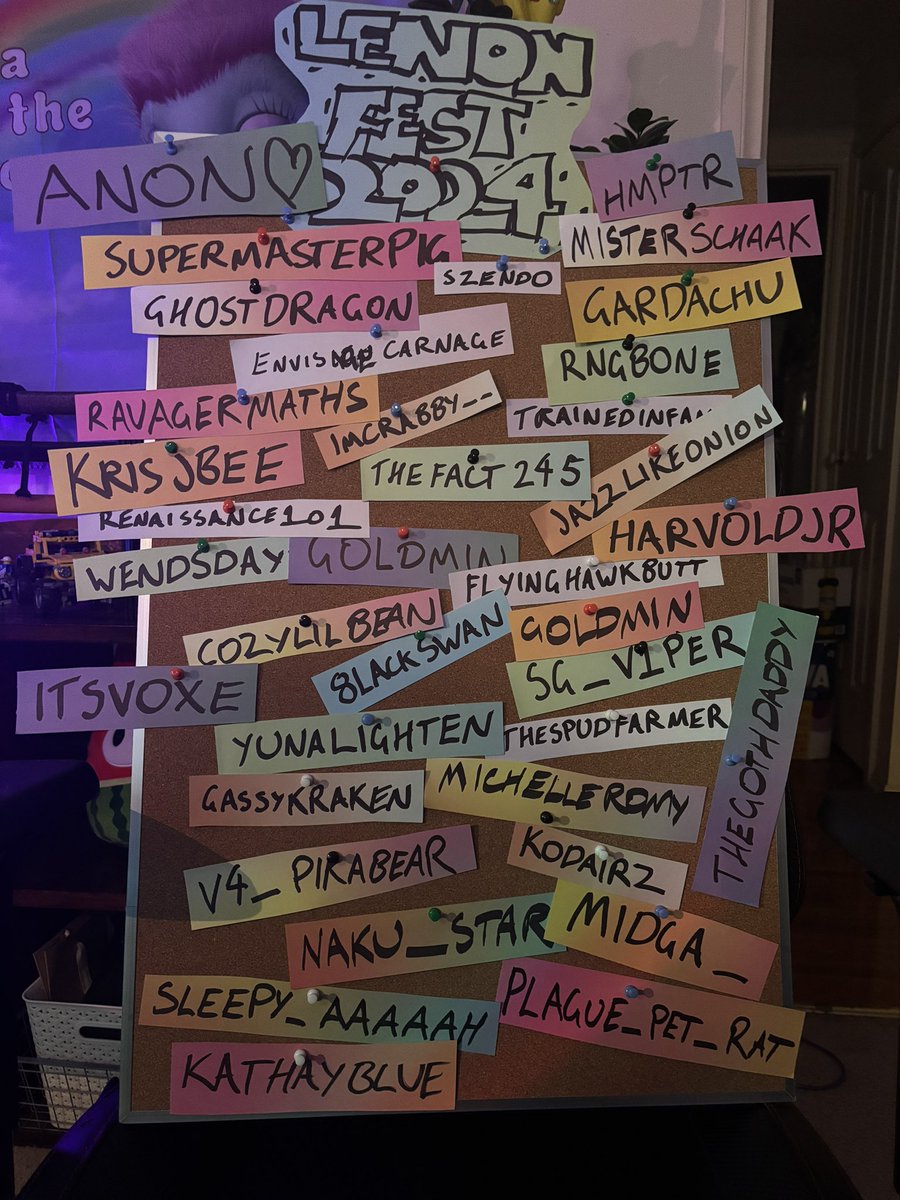 a
the
LENON
FEST
2024
ANON♡
HMPTR
SUPERMASTERPIG
MISTERSCHAAK
SZENDO
GHOSTDRAGON
GARDACHU
ENVISAGE CARNAGE
RNGBONE
RAVAGERMATHS
IMCRABBY--
TRAINEDINFAN
KRISJBEE
THE FACT 245
JAZZLIKEONION
RENAISSANCE101
HARVOLDJR
WENDSDAY
GOLDMIN
FLYINGHAWKBUTT
COZYLILBEAN
8LACKSWAN
GOLDMIN
SG_V1PER
ITSVOXE
THEGOTHDADDY
YUNALIGHTEN
THESPUDFARMER
GASSYKRAKEN
MICHELLEROMY
V4_PIRABEAR
KODAIRZ
NAKU_STAR
MIDGA_
SLEEPY_AAAAAH
PLAGUE_PET_RAT
KATHAYBLUE